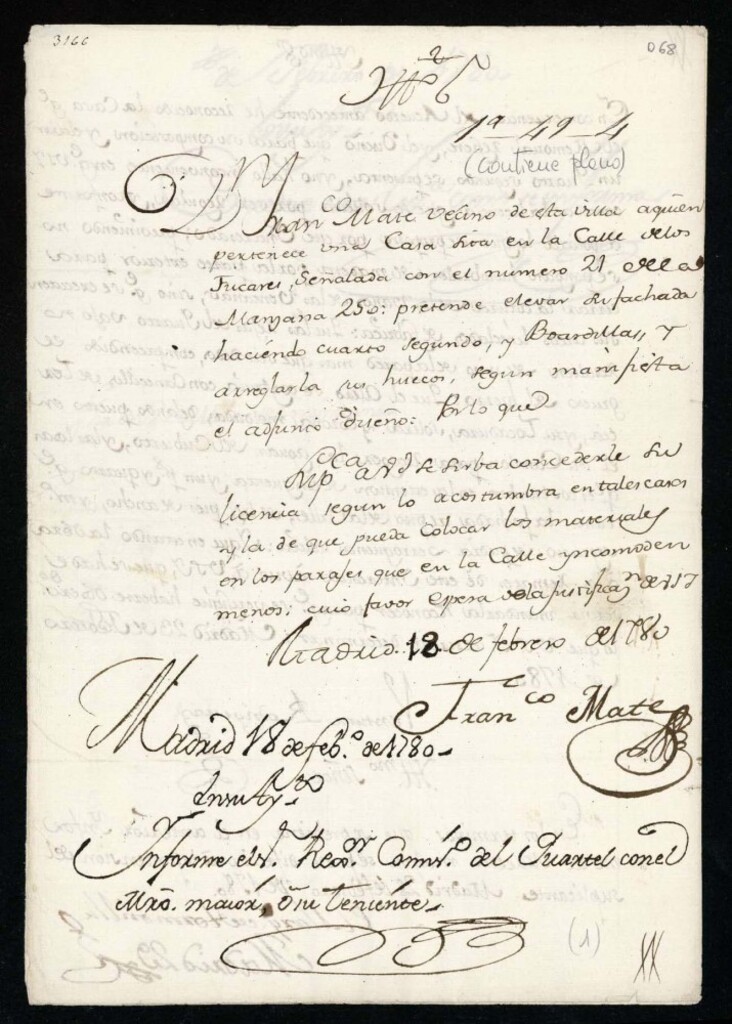 3166
068
Yll.mo S.r
1ª-49-4
(contiene plano)
D.n Fran.co Mate vecino de esta villa aquien
pertenece una Casa sita en la Calle delos
Fucares, Señalada con el numero 21 dela
Manzana 250: pretende elevar su fachada
haciendo cuarto segundo, y Boardillas, y
arreglarla sus huecos, segun manifiesta
el adjunto diseño: Por lo que
Sup.ca a V.S.Y. se sirba concederle su
licencia segun lo acostumbra entales casos
y la de que pueda colocar los materiales
en los parajes que en la Calle yncomoden
menos: cuio favor espera dela justificaz.n de V.S.Y.
Madrid 18 de febrero de 1780
Fran.co Mate
Madrid 18 de feb.o de 1780-
En su Ay.to
Ynforme el s.r Rex.or Comis.o del Quartel con el
Mro. maior, ô su teniente-
(1)